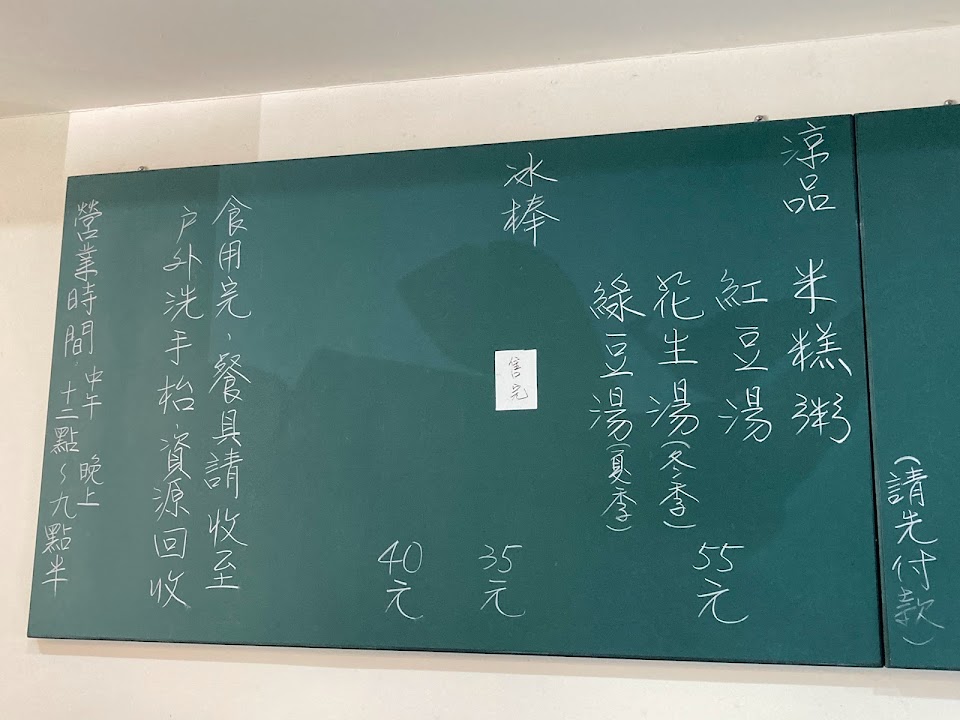 (請先付款)
涼品
米糕粥
紅豆湯
花生湯(冬季)
綠豆湯(夏季)
55元
冰棒
售完
35元
40元
食用完、餐具請收至
戶外洗手枱,資源回收
營業時間,中午十二點~晚上九點半